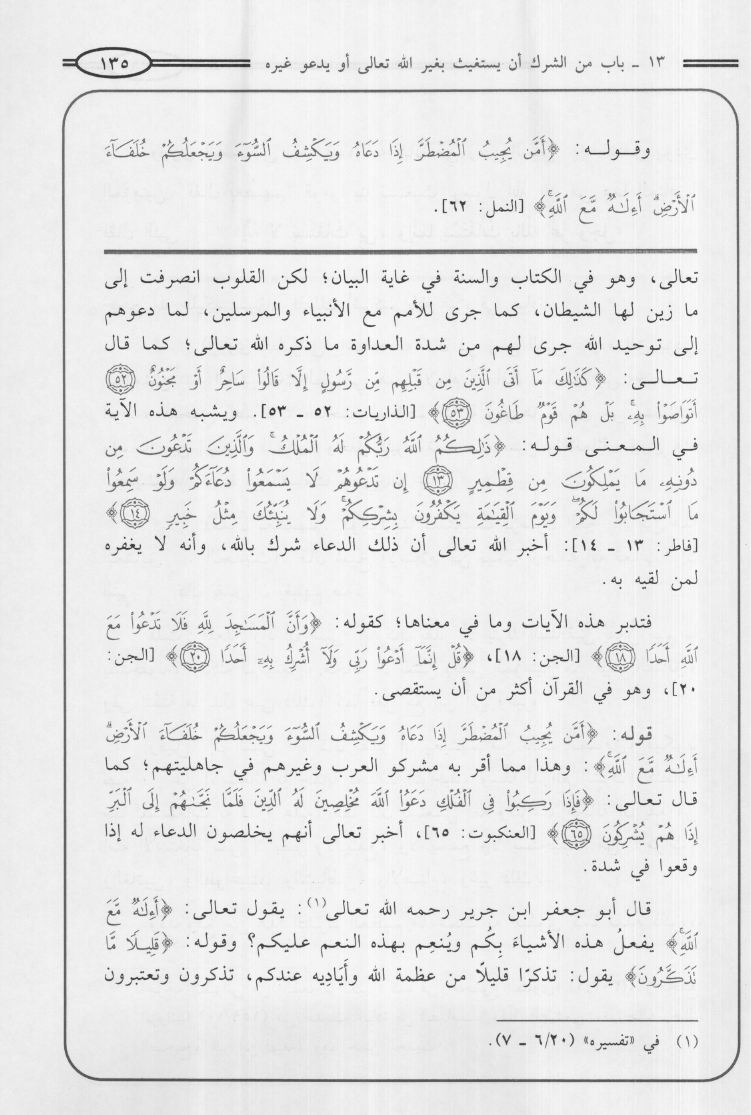 ١٣ ـ باب من الشرك أن يستغيث بغير الله تعالى أو يدعو غيره
١٣٥
وقـولـه: ﴿أَمَّن يُجِيبُ ٱلْمُضْطَرَّ إِذَا دَعَاهُ وَيَكْشِفُ ٱلسُّوٓءَ وَيَجْعَلُكُمْ خُلَفَآءَ
ٱلْأَرْضِ أَءِلَٰهٌ مَّعَ ٱللَّهِ﴾ [النمل: ٦٢].
تعالى، وهو في الكتاب والسنة في غاية البيان؛ لكن القلوب انصرفت إلى
ما زين لها الشيطان، كما جرى للأمم مع الأنبياء والمرسلين، لما دعوهم
إلى توحيد الله جرى لهم من شدة العداوة ما ذكره الله تعالى؛ كما قال
تعـالـى: ﴿كَذَٰلِكَ مَآ أَتَى ٱلَّذِينَ مِن قَبْلِهِم مِّن رَّسُولٍ إِلَّا قَالُوا۟ سَاحِرٌ أَوْ مَجْنُونٌ ٥٢
أَتَوَاصَوْا۟ بِهِۦ بَلْ هُمْ قَوْمٌ طَاغُونَ ٥٣﴾ [الذاريات: ٥٢ ـ ٥٣]. ويشبه هذه الآية
في الـمعنـى قولـه: ﴿ذَٰلِكُمُ ٱللَّهُ رَبُّكُمْ لَهُ ٱلْمُلْكُ وَٱلَّذِينَ تَدْعُونَ مِن
دُونِهِۦ مَا يَمْلِكُونَ مِن قِطْمِيرٍ ١٣ إِن تَدْعُوهُمْ لَا يَسْمَعُوا۟ دُعَآءَكُمْ وَلَوْ سَمِعُوا۟
مَا ٱسْتَجَابُوا۟ لَكُمْ وَيَوْمَ ٱلْقِيَٰمَةِ يَكْفُرُونَ بِشِرْكِكُمْ وَلَا يُنَبِّئُكَ مِثْلُ خَبِيرٍ ١٤﴾
[فاطر: ١٣ ـ ١٤]: أخبر الله تعالى أن ذلك الدعاء شرك بالله، وأنه لا يغفره
لمن لقيه به.
فتدبر هذه الآيات وما في معناها؛ كقوله: ﴿وَأَنَّ ٱلْمَسَٰجِدَ لِلَّهِ فَلَا تَدْعُوا۟ مَعَ
ٱللَّهِ أَحَدًا ١٨﴾ [الجن: ١٨]، ﴿قُلْ إِنَّمَآ أَدْعُوا۟ رَبِّى وَلَآ أُشْرِكُ بِهِۦٓ أَحَدًا ٢٠﴾ [الجن:
٢٠]، وهو في القرآن أكثر من أن يستقصى.
قوله: ﴿أَمَّن يُجِيبُ ٱلْمُضْطَرَّ إِذَا دَعَاهُ وَيَكْشِفُ ٱلسُّوٓءَ وَيَجْعَلُكُمْ خُلَفَآءَ ٱلْأَرْضِ
أَءِلَٰهٌ مَّعَ ٱللَّهِ﴾: وهذا مما أقر به مشركو العرب وغيرهم في جاهليتهم؛ كما
قال تعـالى: ﴿فَإِذَا رَكِبُوا۟ فِى ٱلْفُلْكِ دَعَوُا۟ ٱللَّهَ مُخْلِصِينَ لَهُ ٱلدِّينَ فَلَمَّا نَجَّىٰهُمْ إِلَى ٱلْبَرِّ
إِذَا هُمْ يُشْرِكُونَ ٦٥﴾ [العنكبوت: ٦٥]، أخبر تعالى أنهم يخلصون الدعاء له إذا
وقعوا في شدة.
قال أبو جعفر ابن جرير رحمه الله تعالى(١): يقول تعالى: ﴿أَءِلَٰهٌ مَّعَ
ٱللَّهِ﴾ يفعلُ هذه الأشياءَ بِكُم ويُنعِم بهذه النعم عليكم؟ وقوله: ﴿قَلِيلًا مَّا
تَذَكَّرُونَ﴾ يقول: تذكرًا قليلًا من عظمة الله وأَيَادِيه عندكم، تذكرون وتعتبرون
(١) في «تفسيره» (٦/٢٠ ـ ٧).